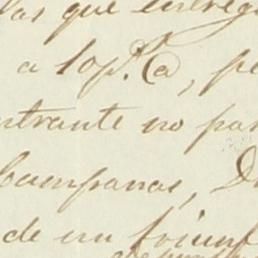 las que entreg
a 10 p.r @, pe
ntrante no par
Campanas, D
de un triunf